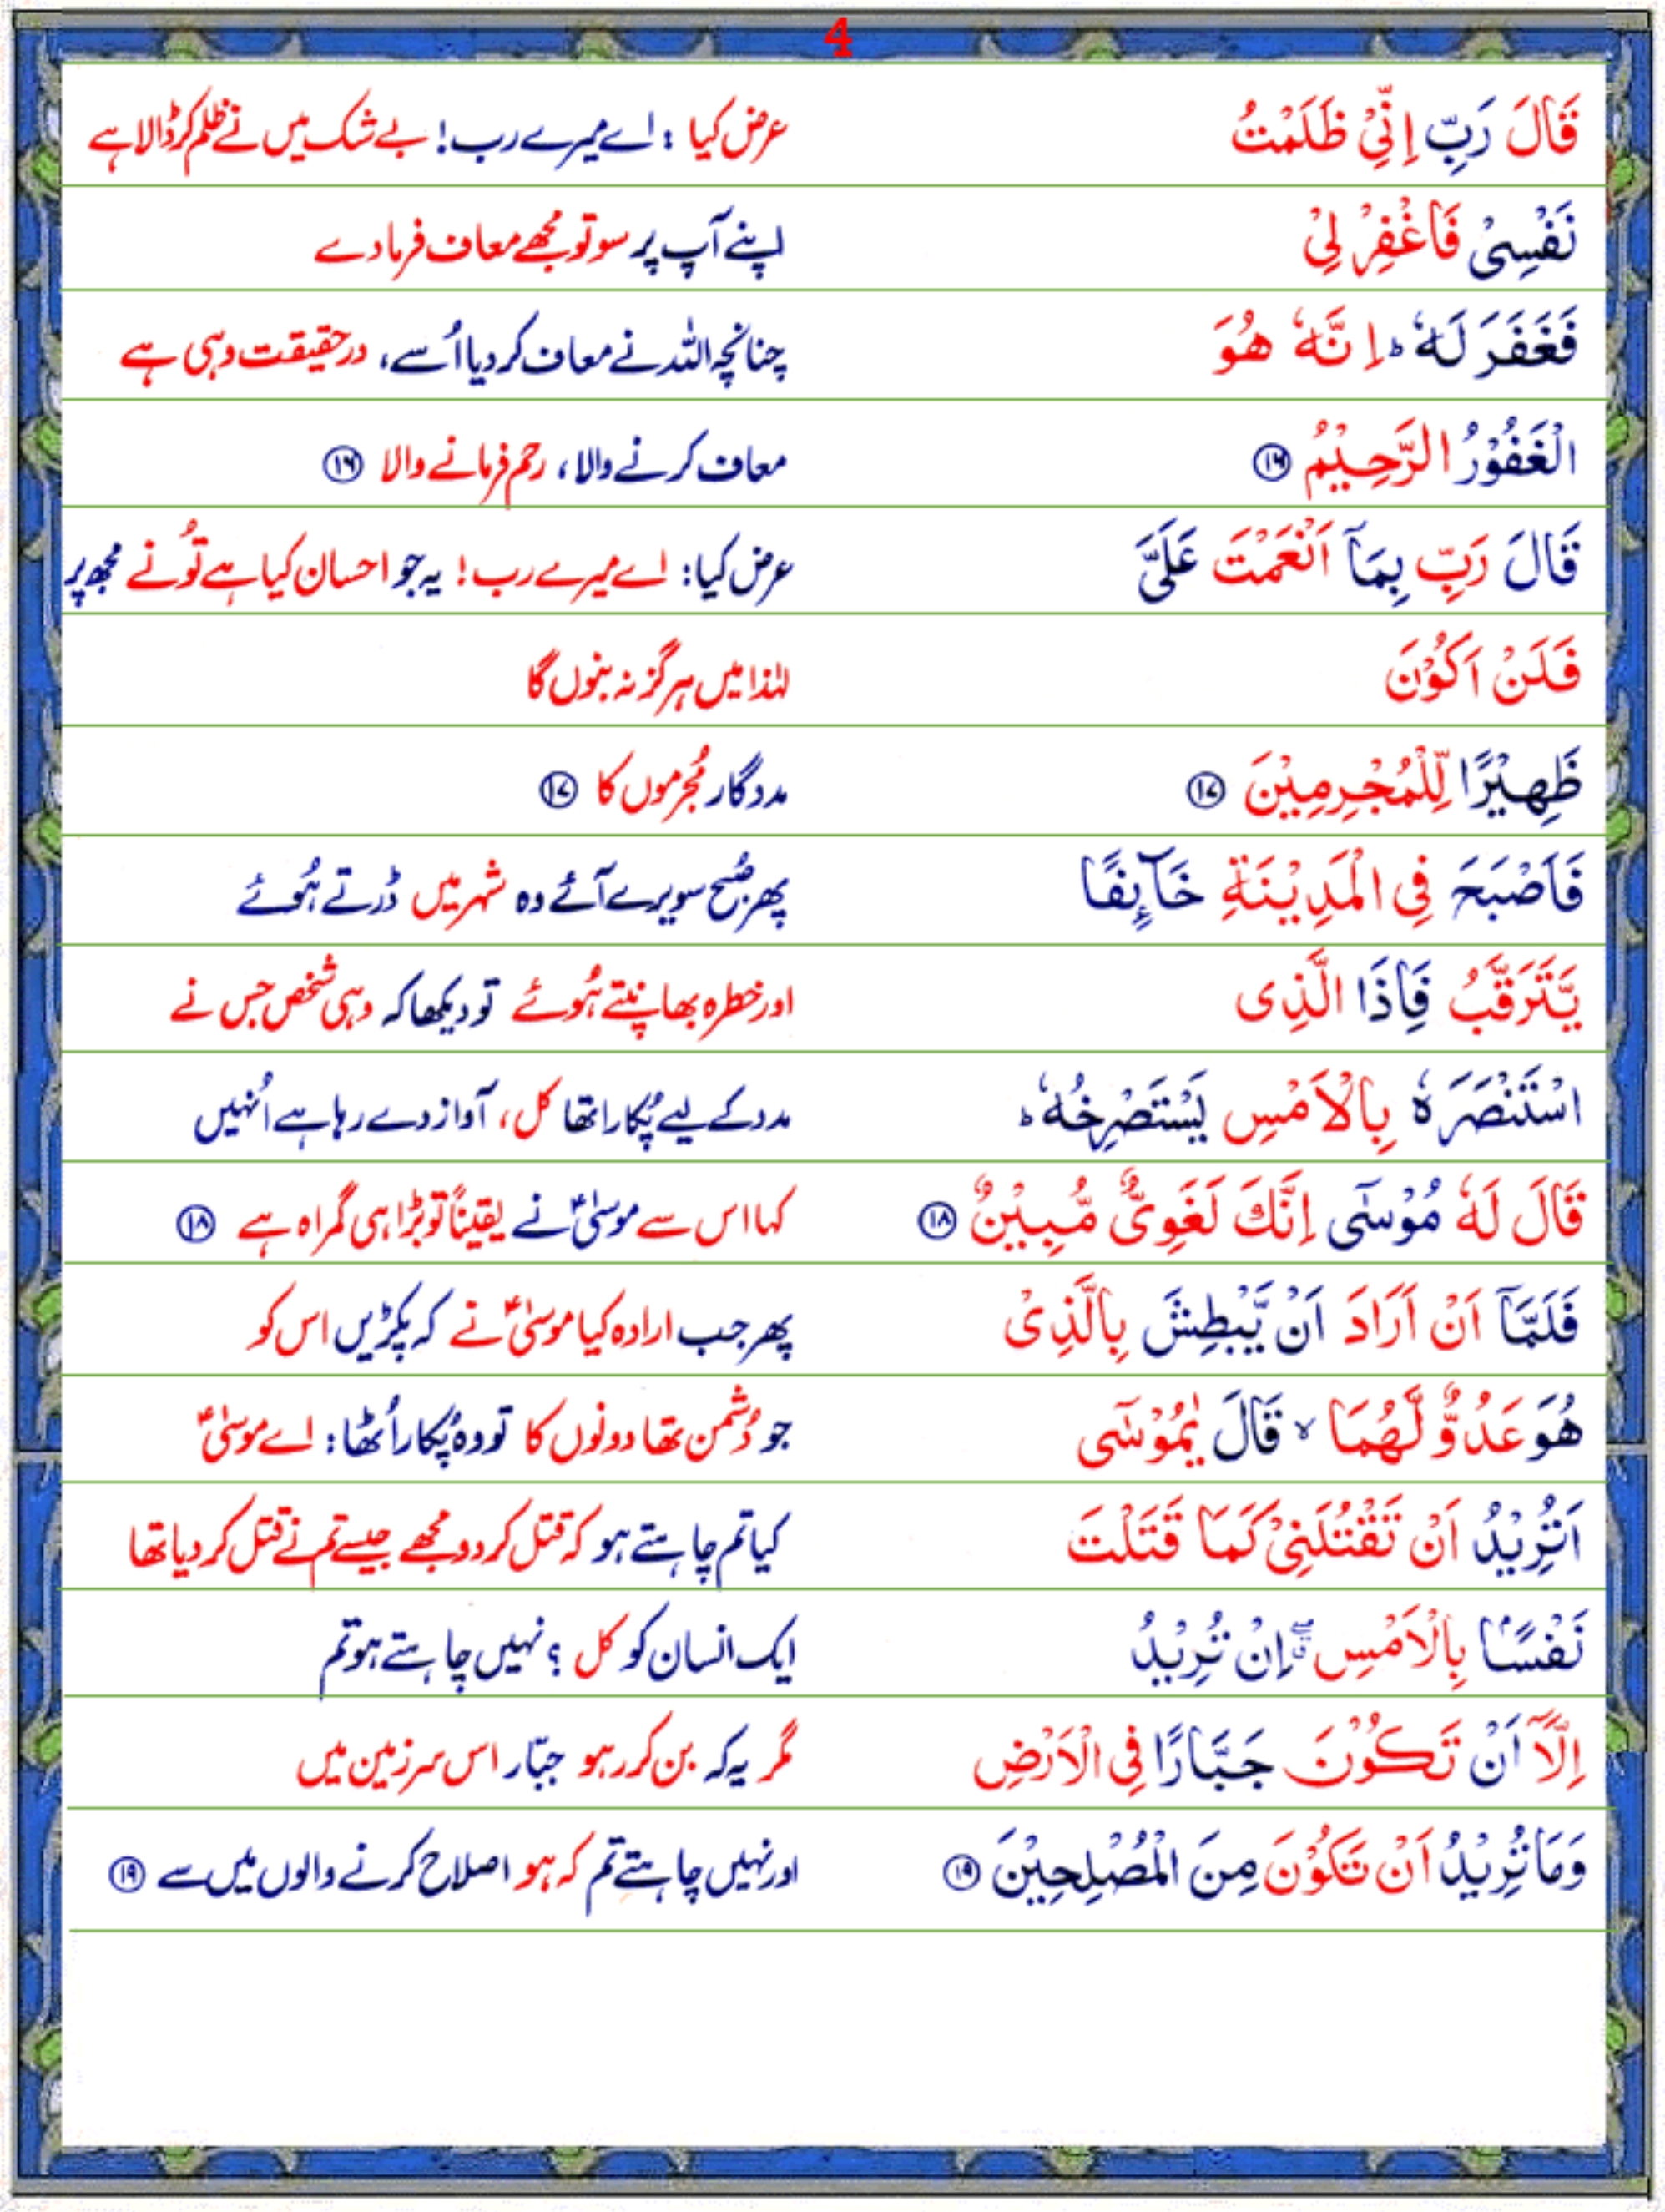 4
قَالَ رَبِّ اِنِّیْ ظَلَمْتُ عرض کیا : اے میرے رب! بے شک میں نے ظلم کر ڈالا ہے
نَفْسِیْ فَاغْفِرْ لِیْ اپنے آپ پر سو تو مجھے معاف فرما دے
فَغَفَرَ لَهٗ ؕ اِنَّهٗ هُوَ چنانچہ اللہ نے معاف کر دیا اُسے، درحقیقت وہی ہے
الْغَفُوْرُ الرَّحِیْمُ ⑯ معاف کرنے والا، رحم فرمانے والا ⑯
قَالَ رَبِّ بِمَاۤ اَنْعَمْتَ عَلَیَّ عرض کیا: اے میرے رب! یہ جو احسان کیا ہے تُو نے مجھ پر
فَلَنْ اَكُوْنَ لہٰذا میں ہرگز نہ بنوں گا
ظَهِیْرًا لِّلْمُجْرِمِیْنَ ⑰ مددگار مُجرموں کا ⑰
فَاَصْبَحَ فِی الْمَدِیْنَةِ خَآىِٕفًا پھر صُبح سویرے آئے وہ شہر میں ڈرتے ہُوئے
یَّتَرَقَّبُ فَاِذَا الَّذِی اور خطرہ بھانپتے ہُوئے تو دیکھا کہ وہی شخص جس نے
اسْتَنْصَرَهٗ بِالْاَمْسِ یَسْتَصْرِخُهٗ ؕ مدد کے لیے پُکارا تھا کل، آواز دے رہا ہے اُنہیں
قَالَ لَهٗ مُوْسٰۤی اِنَّكَ لَغَوِیٌّ مُّبِیْنٌ ⑱ کہا اس سے موسیٰؑ نے یقیناً تو بڑا ہی گمراہ ہے ⑱
فَلَمَّاۤ اَنْ اَرَادَ اَنْ یَّبْطِشَ بِالَّذِیْ پھر جب ارادہ کیا موسیٰؑ نے کہ پکڑیں اس کو
هُوَ عَدُوٌّ لَّهُمَا ۙ قَالَ یٰمُوْسٰۤی جو دُشمن تھا دونوں کا تو وہ پُکار اُٹھا: اے موسیٰؑ
اَتُرِیْدُ اَنْ تَقْتُلَنِیْ كَمَا قَتَلْتَ کیا تم چاہتے ہو کہ قتل کر دو مجھے جیسے تم نے قتل کر دیا تھا
نَفْسًۢا بِالْاَمْسِ ۖۗ اِنْ تُرِیْدُ ایک انسان کو کل ؟ نہیں چاہتے ہو تم
اِلَّاۤ اَنْ تَكُوْنَ جَبَّارًا فِی الْاَرْضِ مگر یہ کہ بن کر رہو جبّار اس سرزمین میں
وَمَا تُرِیْدُ اَنْ تَكُوْنَ مِنَ الْمُصْلِحِیْنَ ⑲ اور نہیں چاہتے تم کہ ہو اصلاح کرنے والوں میں سے ⑲